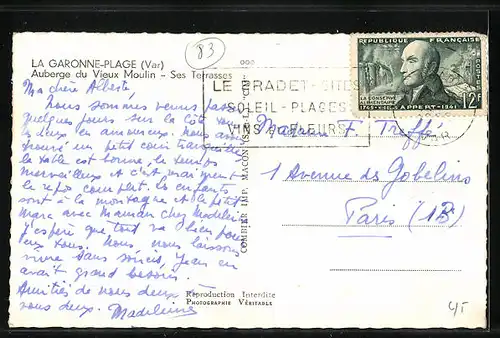 83
LA GARONNE-PLAGE (Var)
Auberge du Vieux Moulin - Ses Terrasses
Ma chère Alberte
Nous sommes venus passer
quelques jours sur la côte
les deux en amoureux. Nous avons
trouvé un petit coin tranquille
la table est bonne, le temps
merveilleux et c'est vraiment
le repos complet. les enfants
sont à la montagne et le petit
Marc avec Maman chez Madeleine
j'espère que tout va bien pour
vous. Nous nous laissons
vivre sans soucis, Jean en
avait grand besoin.
Amitiés de nous deux à
vous deux. Madeleine
COMBIER IMP. MACON
LE PRADET - SITES
SOLEIL - PLAGES
VINS & FLEURS
REPUBLIQUE FRANÇAISE
POSTES
LA CONSERVE ALIMENTAIRE
12F
APPERT-1841
F. Treffé
1 Avenue des Gobelins
Paris (13)
Reproduction Interdite
PHOTOGRAPHIE VÉRITABLE